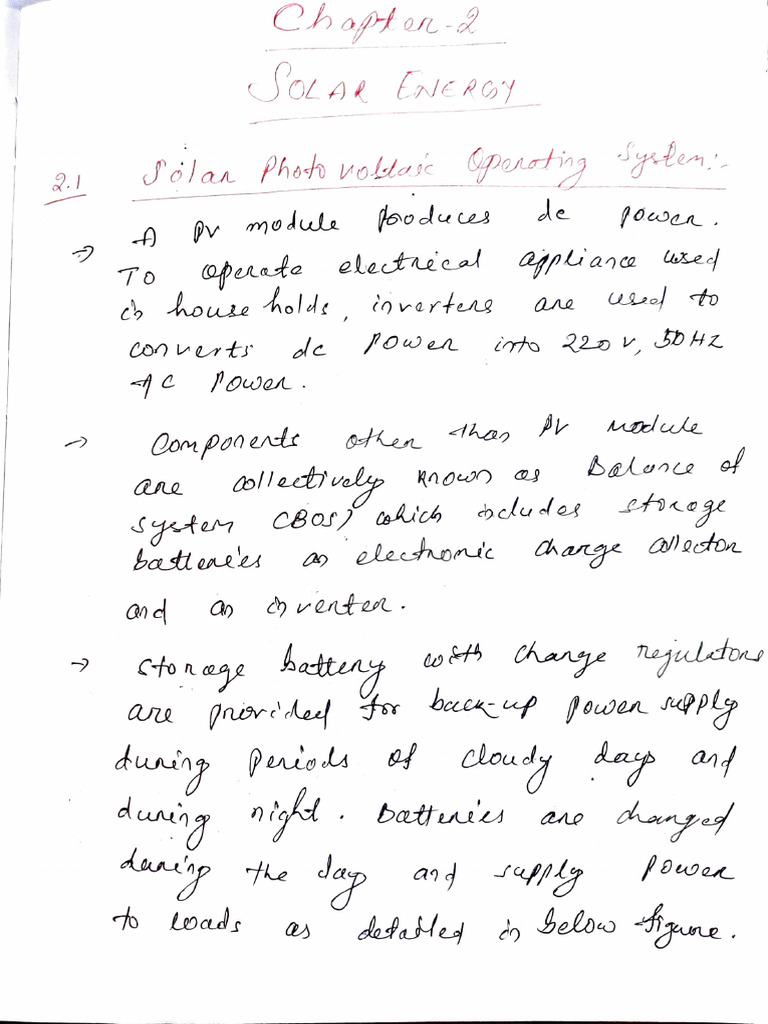 Chapter-2
SOLAR ENERGY
2.1 Solar Photovoltaic Operating System:-
→ A PV module produces dc power.
To operate electrical appliance used
in house holds, inverters are used to
converts dc power into 220V, 50HZ
AC power.
→ Components other than PV module
are collectively known as Balance of
system (BOS) which includes storage
batteries an electronic charge collector
and an inverter.
→ Storage battery with charge regulators
are provided for back-up power supply
during periods of cloudy days and
during night. Batteries are charged
during the day and supply power
to loads as detailed in below figure.